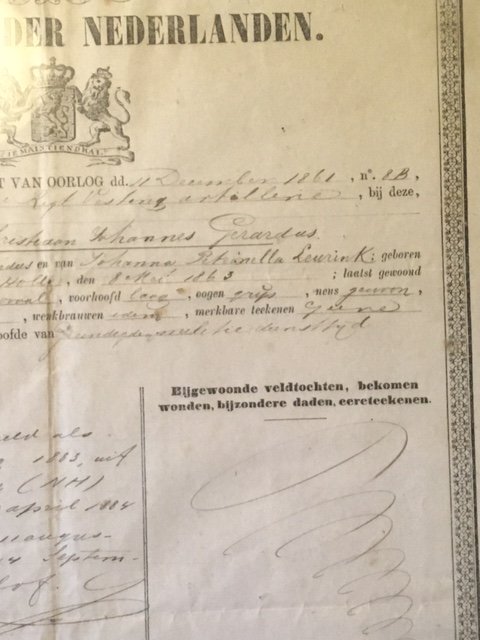 DER NEDERLANDEN.
JE MAINTIENDRAI
T VAN OORLOG dd. 11 December 1861, n°. 8B,
Regt Vesting artillerie, bij deze,
Johannes Gerardus
en van Johanna Petronella Leurink; geboren
den 8 Mei 1863; laatst gewoond
ovaal, voorhoofd laag, oogen grijs, neus gewoon,
, wenkbrauwen idem, merkbare teekenen Geene
oofde van dienstijd
Bijgewoonde veldtochten, bekomen
wonden, bijzondere daden, eereteekenen.
eld als
1883, uit
(NH)
april 1884
augus-
Septem-
lof.